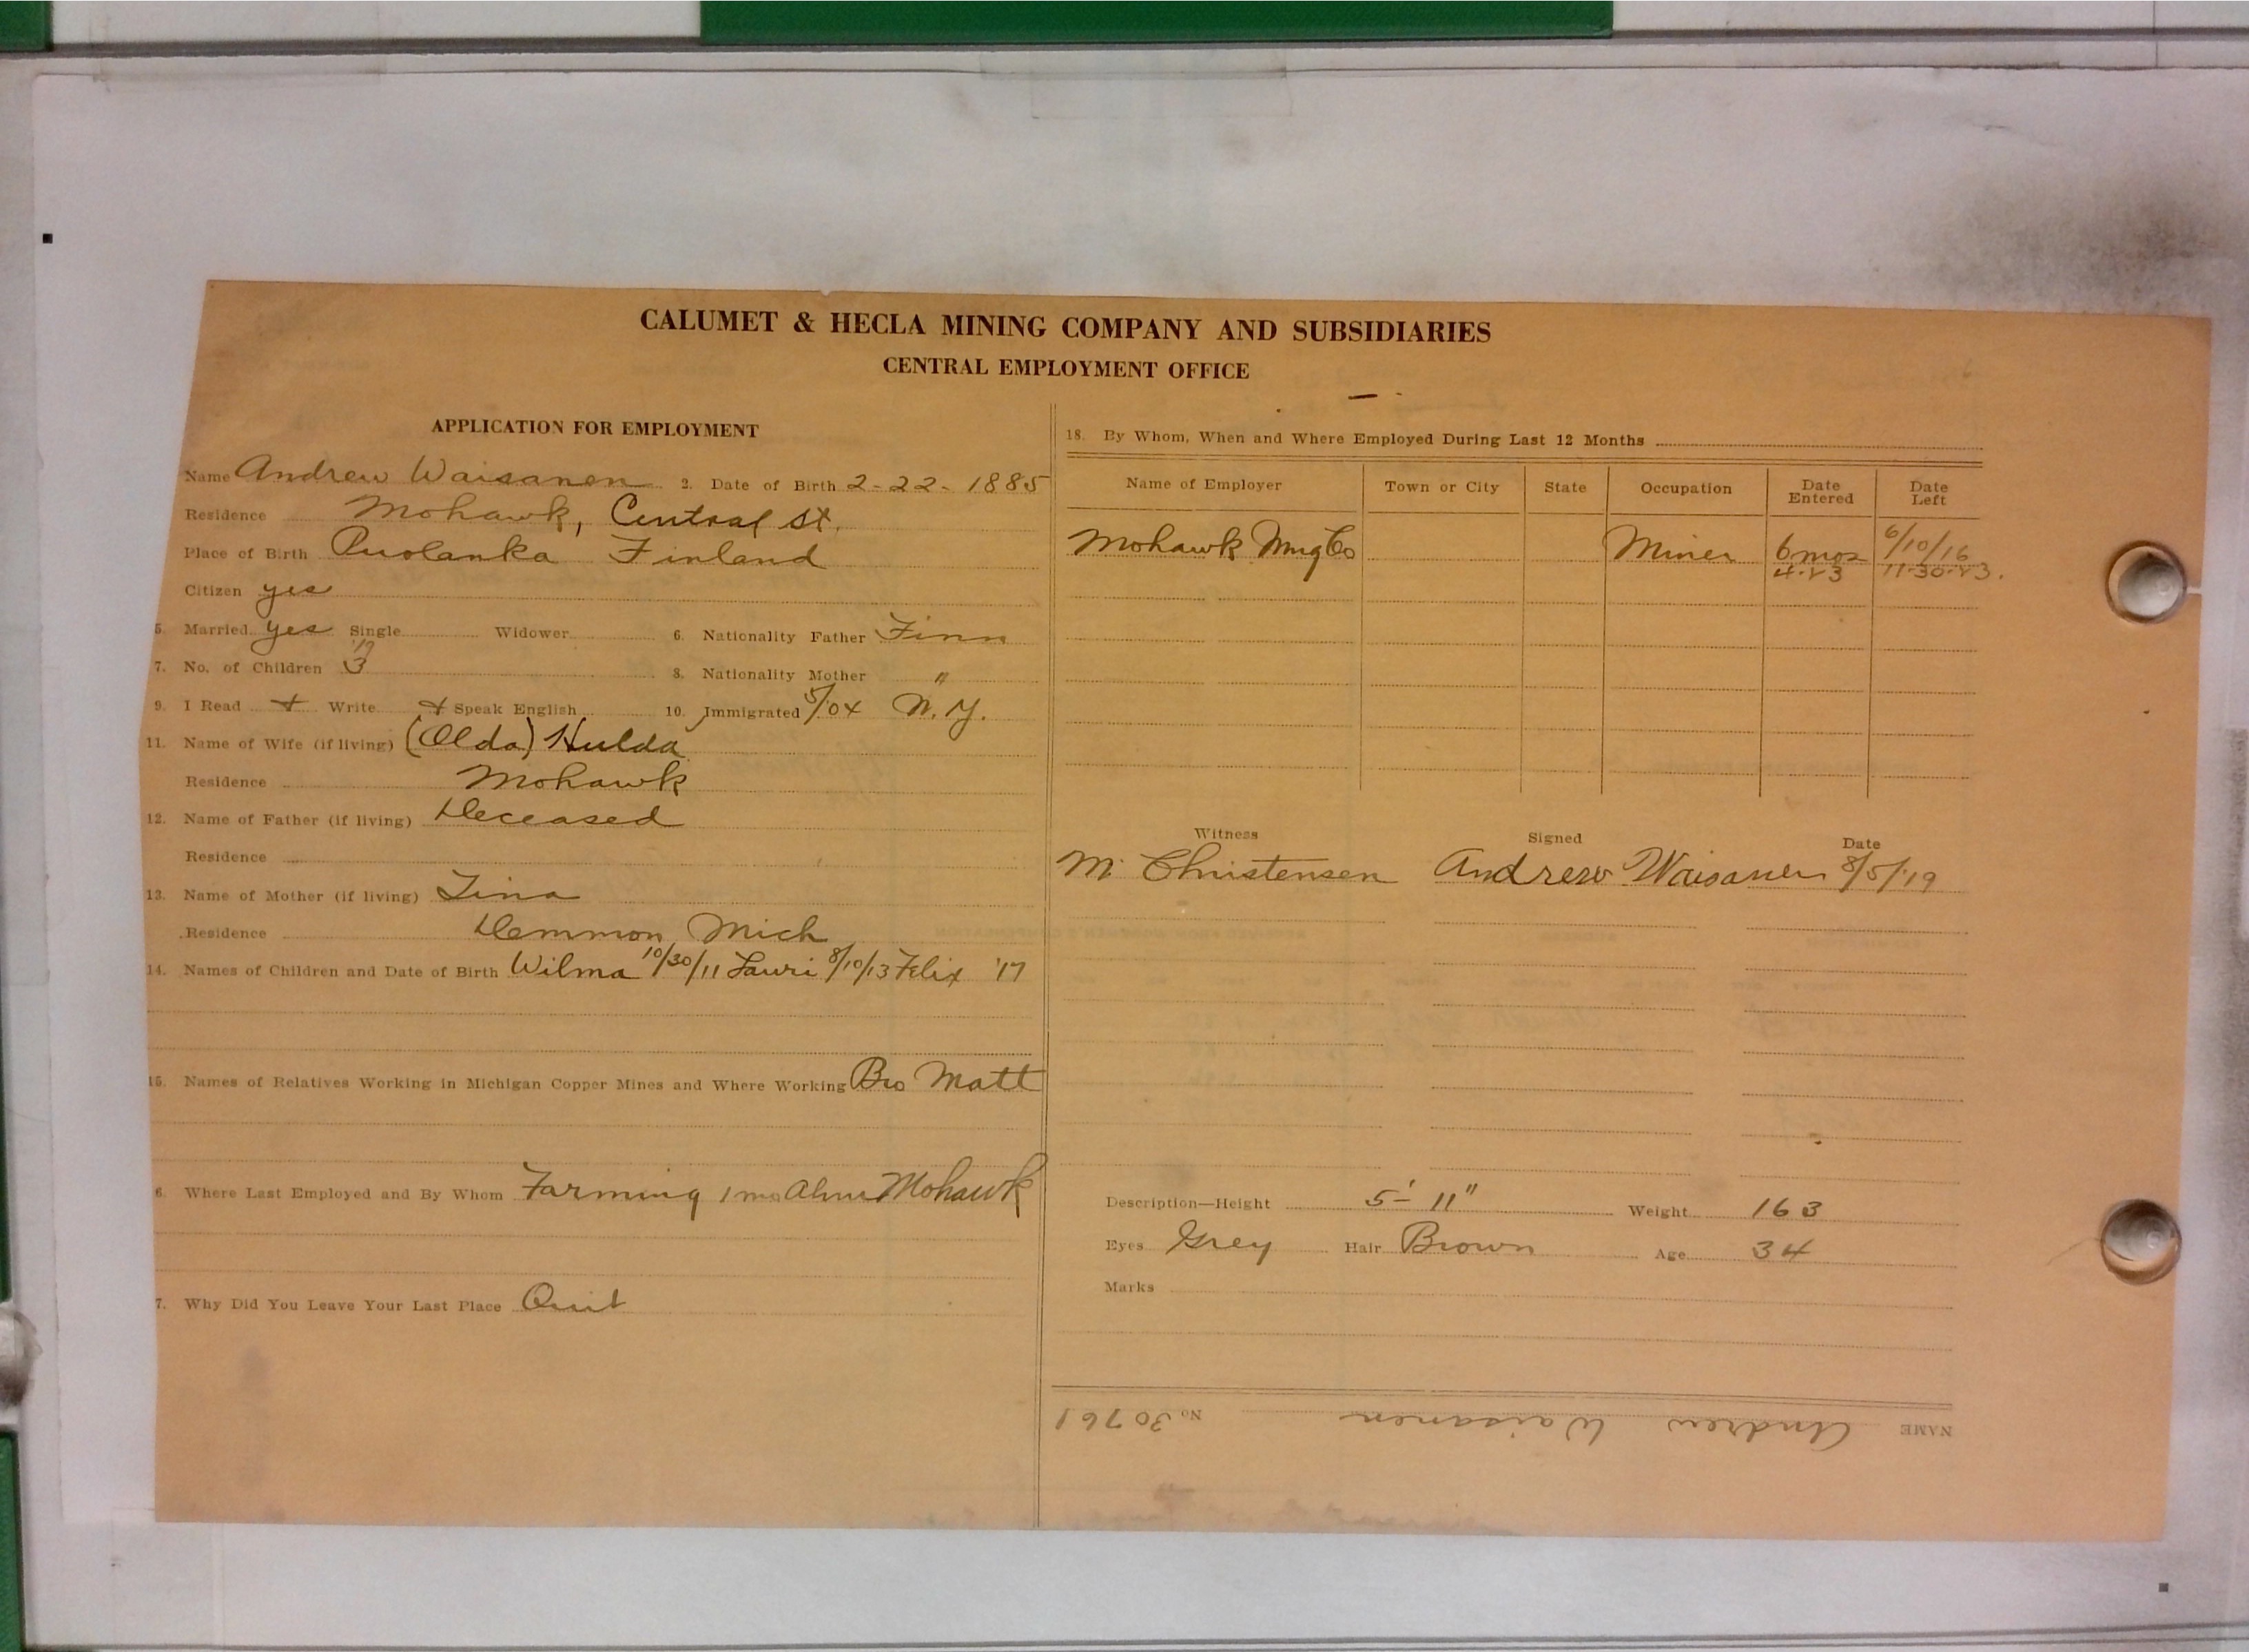 CALUMET & HECLA MINING COMPANY AND SUBSIDIARIES
CENTRAL EMPLOYMENT OFFICE
APPLICATION FOR EMPLOYMENT
Name Andrew Waisanen 2. Date of Birth 2-22-1885
Residence Mohawk, Central St.
Place of Birth Puolanka Finland
Citizen yes
5. Married yes Single Widower 6. Nationality Father Finn
7. No. of Children 3 8. Nationality Mother "
9. I Read + Write + Speak English 10. Immigrated 5/04 N.Y.
11. Name of Wife (if living) (Olda) Hulda
Residence Mohawk
12. Name of Father (if living) Deceased
Residence
13. Name of Mother (if living) Tina
Residence Demmon, Mich
14. Names of Children and Date of Birth Wilma 10/30/11 Lauri 8/10/13 Felix '17
15. Names of Relatives Working in Michigan Copper Mines and Where Working Bro Matt
6. Where Last Employed and By Whom Farming 1 mo Mohawk
7. Why Did You Leave Your Last Place Quit
18. By Whom, When and Where Employed During Last 12 Months
Name of Employer Town or City State Occupation Date Entered Date Left
Mohawk Mng Co Miner 6 mos 6/10/16
4-23 11-30-23.
Witness Signed Date
M. Christensen Andrew Waisanen 8/5/19
Description—Height 5'-11" Weight 163
Eyes Grey Hair Brown Age 34
Marks
NAME Andrew Waisanen No 30761